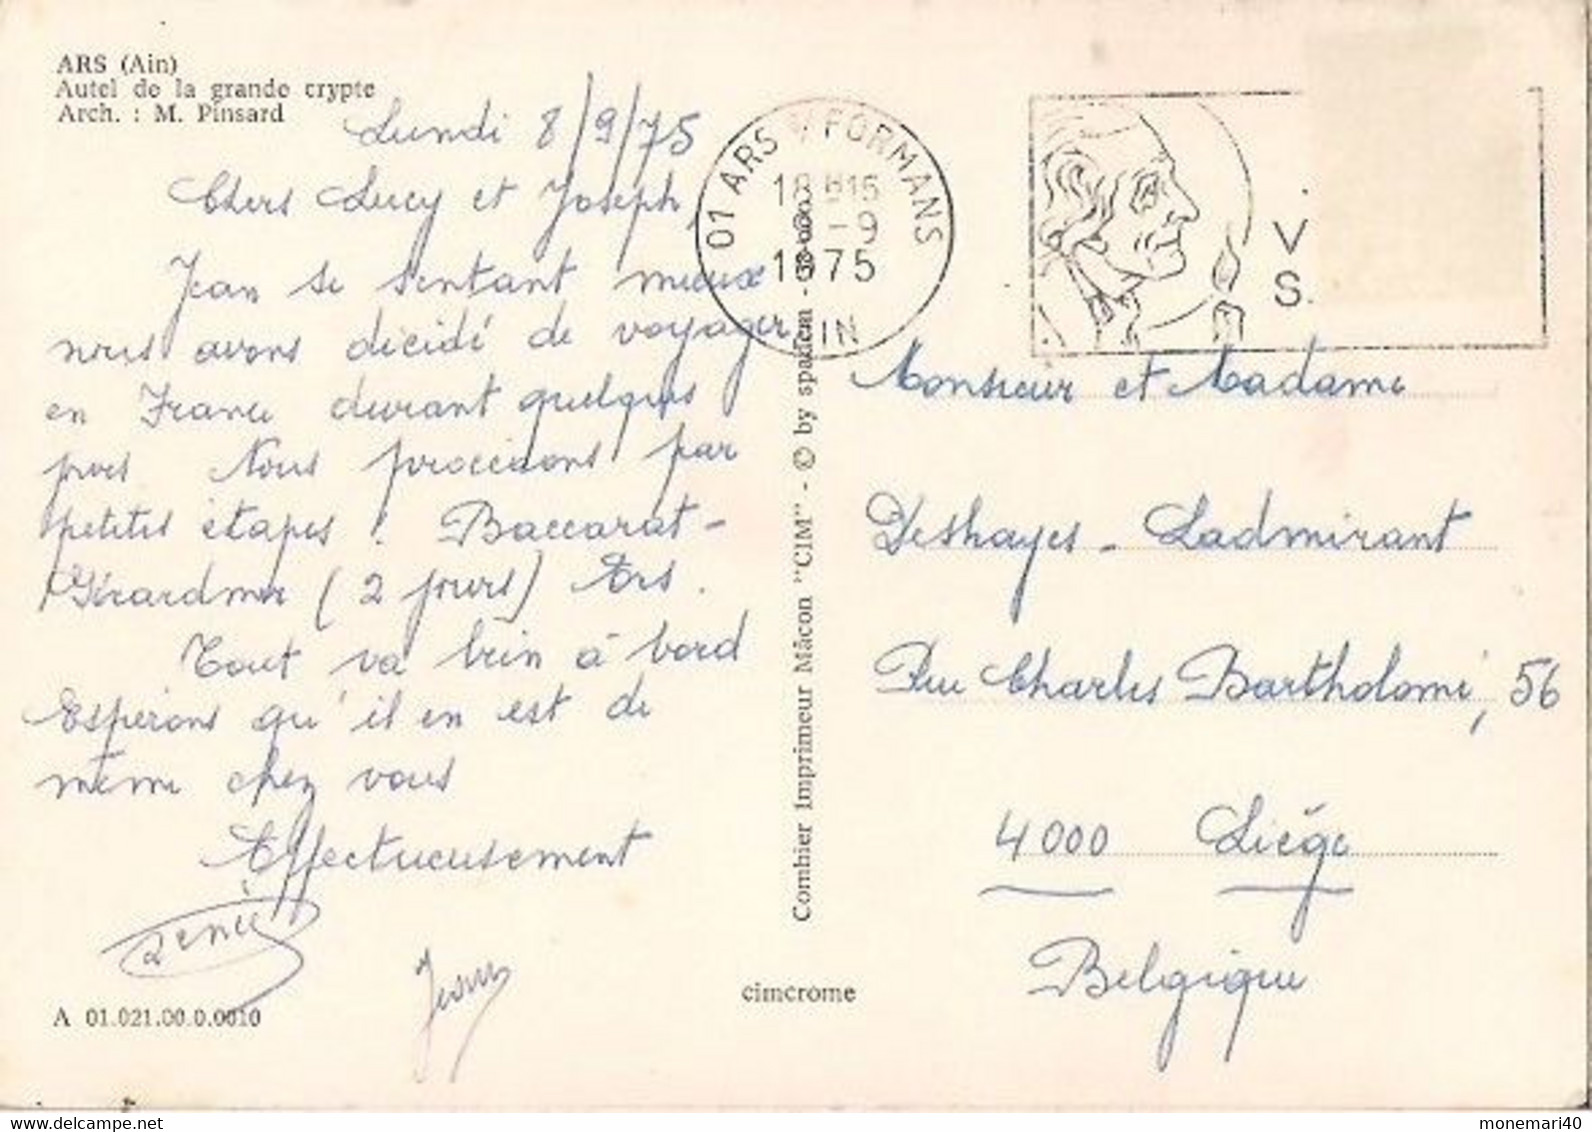 ARS (Ain)
Autel de la grande crypte
Arch. : M. Pinsard
Lundi 8/9/75
Chers Lucy et Joseph,
Jean se sentant mieux
nous avons décidé de voyager
en France durant quelques
jours Nous procédons par
petites étapes : Baccarat-
Gérardmer (2 jours) Ars.
Tout va bien à bord
Espérons qu'il en est de
même chez vous
Affectueusement
Jean
A 01.021.00.0.0010
cimcrome
Combier Imprimeur Mâcon "CIM" - © by spadem -
01 ARS S/ FORMANS
18H15
8-9
1975
AIN
V
S.
Monsieur et Madame
Deshayes - Ladmirant
Rue Charles Bartholomé, 56
4000 Liége
Belgique
monemari40